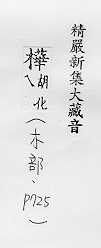 精嚴新集大藏音
樺
胡化(木部、P725)